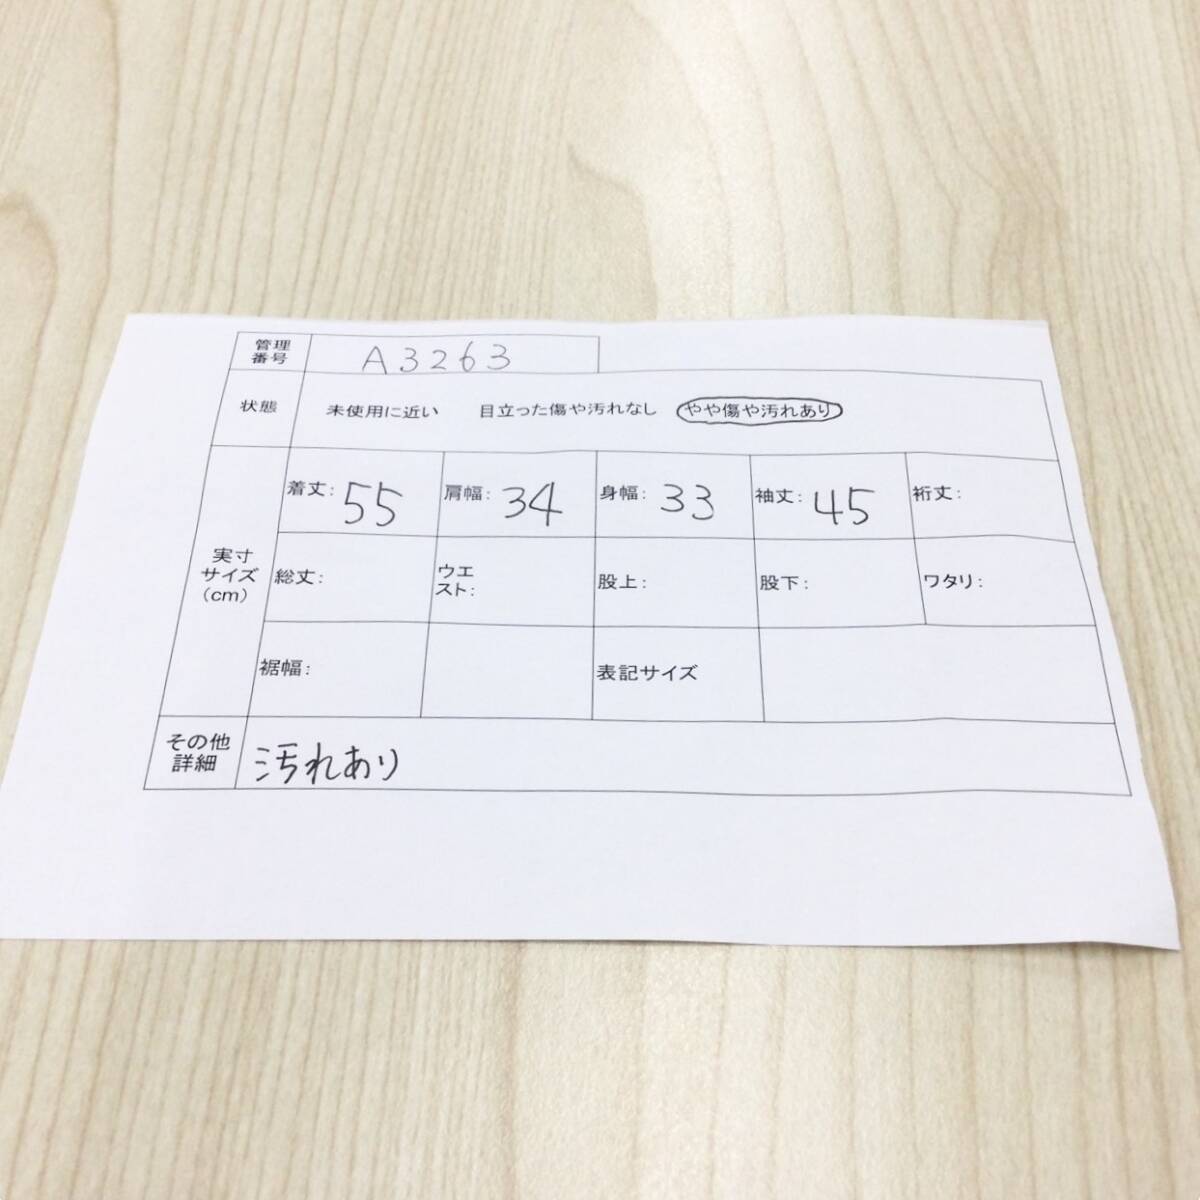 管理
番号
A3263
状態
未使用に近い 目立った傷や汚れなし やや傷や汚れあり
実寸
サイズ
(cm)
着丈: 55 肩幅: 34 身幅: 33 袖丈: 45 裄丈:
総丈: ウエ
スト: 股上: 股下: ワタリ:
裾幅: 表記サイズ
その他
詳細
汚れあり